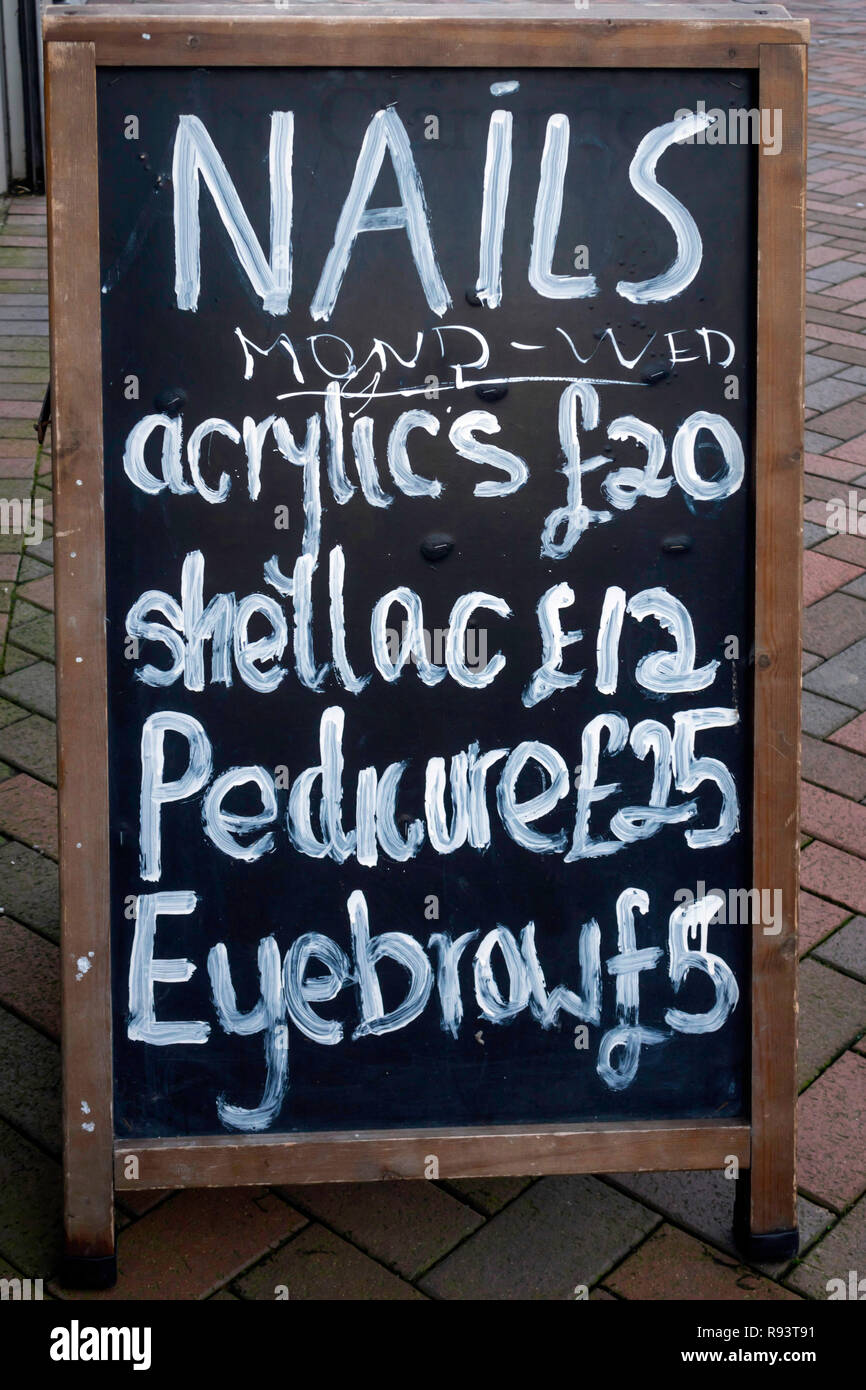 NAiLS
MOND - WED
acrylic's £20
shellac £12
Pedicure £25
Eyebrow £5
alamy
Image ID: R93T91
www.alamy.com